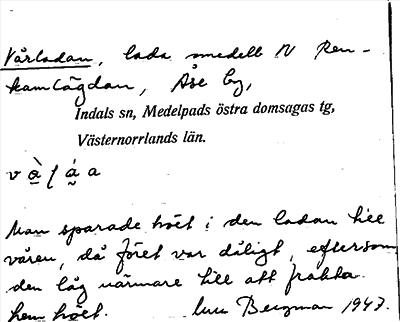 Vårladan, lada omedelb N Ren-
kamlägdan, Åse by,
Indals sn, Medelpads östra domsagas tg,
Västernorrlands län.
Man sparade höet i den ladan till
våren, då föret var dåligt, eftersom
den låg närmare till att frakta
hem höet. Bergman 1947.